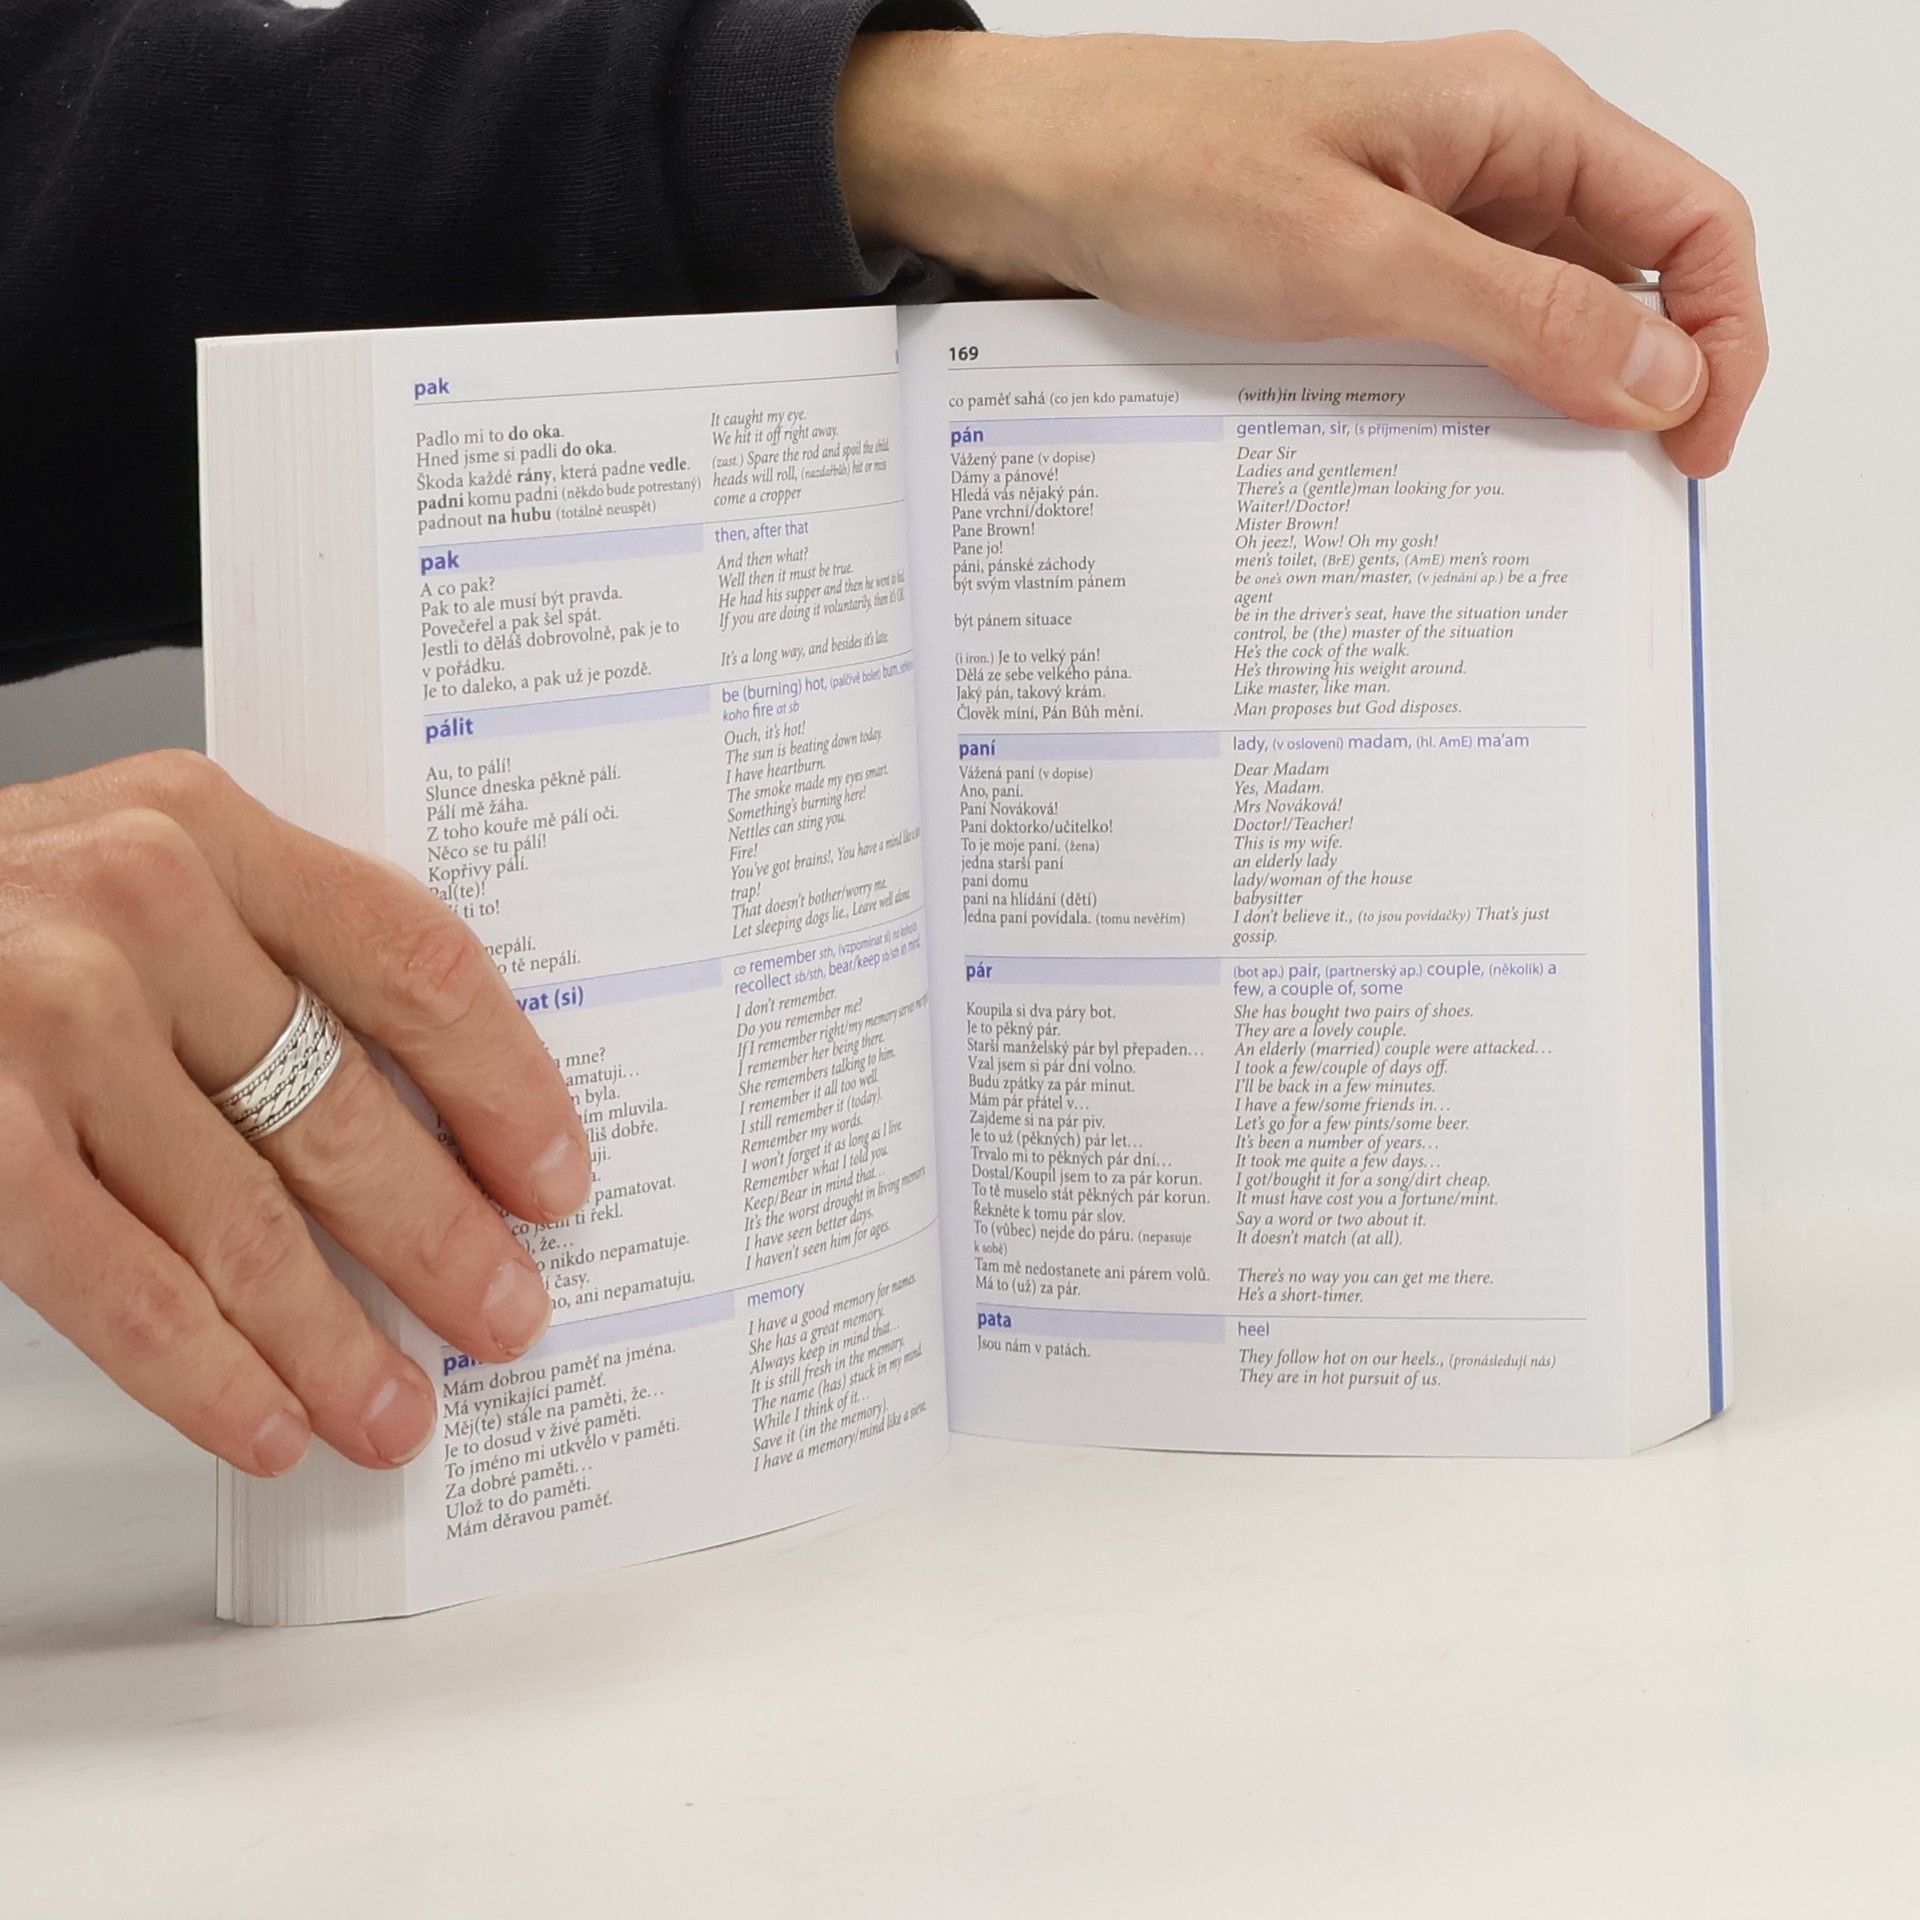 pak
Padlo mi to do oka.
Hned jsme si padli do oka.
Škoda každé rány, která padne vedle.
padni komu padni (někdo bude potrestaný)
padnout na hubu (totálně neuspět)
It caught my eye.
We hit it off right away.
(zast.) Spare the rod and spoil the child.
heads will roll, (nazdařbůh) hit or miss
come a cropper
pak
then, after that
A co pak?
Pak to ale musí být pravda.
Povečeřel a pak šel spát.
Jestli to děláš dobrovolně, pak je to
v pořádku.
Je to daleko, a pak už je pozdě.
And then what?
Well then it must be true.
He had his supper and then he went to bed.
If you are doing it voluntarily, then it's OK.
It's a long way, and besides it's late.
pálit
be (burning) hot, (palčivě bolet) burn,
koho fire at sb
Au, to pálí!
Slunce dneska pěkně pálí.
Pálí mě žáha.
Z toho kouře mě pálí oči.
Něco se tu pálí!
Kopřivy pálí.
Pal(te)!
ti to!
nepálí.
tě nepálí.
Ouch, it's hot!
The sun is beating down today.
I have heartburn.
The smoke made my eyes smart.
Something's burning here!
Nettles can sting you.
Fire!
You've got brains!, You have a mind like a
trap!
That doesn't bother/worry me.
Let sleeping dogs lie., Leave well alone.
vat (si)
co remember sth, (vzpomínat si) na koho/co
recollect sb/sth, bear/keep sb/sth in mind
mne?
amatuji…
byla.
ím mluvila.
liš dobře.
uji.
pamatovat.
co jsem ti řekl.
), že…
nikdo nepamatuje.
í časy.
ho, ani nepamatuju.
I don't remember.
Do you remember me?
If I remember right/my memory serves me
I remember her being there.
She remembers talking to him.
I remember it all too well.
I still remember it (today).
Remember my words.
I won't forget it as long as I live.
Remember what I told you.
Keep/Bear in mind that…
It's the worst drought in living memory.
I have seen better days.
I haven't seen him for ages.
memory
Mám dobrou paměť na jména.
Má vynikající paměť.
Měj(te) stále na paměti, že…
Je to dosud v živé paměti.
To jméno mi utkvělo v paměti.
Za dobré paměti…
Ulož to do paměti.
Mám děravou paměť.
I have a good memory for names.
She has a great memory.
Always keep in mind that…
It is still fresh in the memory.
The name (has) stuck in my mind.
While I think of it…
Save it (in the memory).
I have a memory/mind like a sieve.
169
co paměť sahá (co jen kdo pamatuje)
(with)in living memory
pán
gentleman, sir, (s příjmením) mister
Vážený pane (v dopise)
Dear Sir
Dámy a pánové!
Ladies and gentlemen!
Hledá vás nějaký pán.
There's a (gentle)man looking for you.
Pane vrchní/doktore!
Waiter!/Doctor!
Pane Brown!
Mister Brown!
Pane jo!
Oh jeez!, Wow! Oh my gosh!
páni, pánské záchody
men's toilet, (BrE) gents, (AmE) men's room
být svým vlastním pánem
be one's own man/master, (v jednání ap.) be a free
agent
být pánem situace
be in the driver's seat, have the situation under
control, be (the) master of the situation
(i iron.) Je to velký pán!
He's the cock of the walk.
Dělá ze sebe velkého pána.
He's throwing his weight around.
Jaký pán, takový krám.
Like master, like man.
Člověk míní, Pán Bůh mění.
Man proposes but God disposes.
paní
lady, (v oslovení) madam, (hl. AmE) ma'am
Vážená paní (v dopise)
Dear Madam
Ano, paní.
Yes, Madam.
Paní Nováková!
Mrs Nováková!
Paní doktorko/učitelko!
Doctor!/Teacher!
To je moje paní. (žena)
This is my wife.
jedna starší paní
an elderly lady
paní domu
lady/woman of the house
paní na hlídání (dětí)
babysitter
Jedna paní povídala. (tomu nevěřím)
I don't believe it., (to jsou povídačky) That's just
gossip.
pár
(bot ap.) pair, (partnerský ap.) couple, (několik) a
few, a couple of, some
Koupila si dva páry bot.
She has bought two pairs of shoes.
Je to pěkný pár.
They are a lovely couple.
Starší manželský pár byl přepaden…
An elderly (married) couple were attacked…
Vzal jsem si pár dní volno.
I took a few/couple of days off.
Budu zpátky za pár minut.
I'll be back in a few minutes.
Mám pár přátel v…
I have a few/some friends in…
Zajdeme si na pár piv.
Let's go for a few pints/some beer.
Je to už (pěkných) pár let…
It's been a number of years…
Trvalo mi to pěkných pár dní…
It took me quite a few days…
Dostal/Koupil jsem to za pár korun.
I got/bought it for a song/dirt cheap.
To tě muselo stát pěkných pár korun.
It must have cost you a fortune/mint.
Řekněte k tomu pár slov.
Say a word or two about it.
To (vůbec) nejde do páru. (nepasuje
k sobě)
It doesn't match (at all).
Tam mě nedostanete ani párem volů.
There's no way you can get me there.
Má to (už) za pár.
He's a short-timer.
pata
heel
Jsou nám v patách.
They follow hot on our heels., (pronásledují nás)
They are in hot pursuit of us.